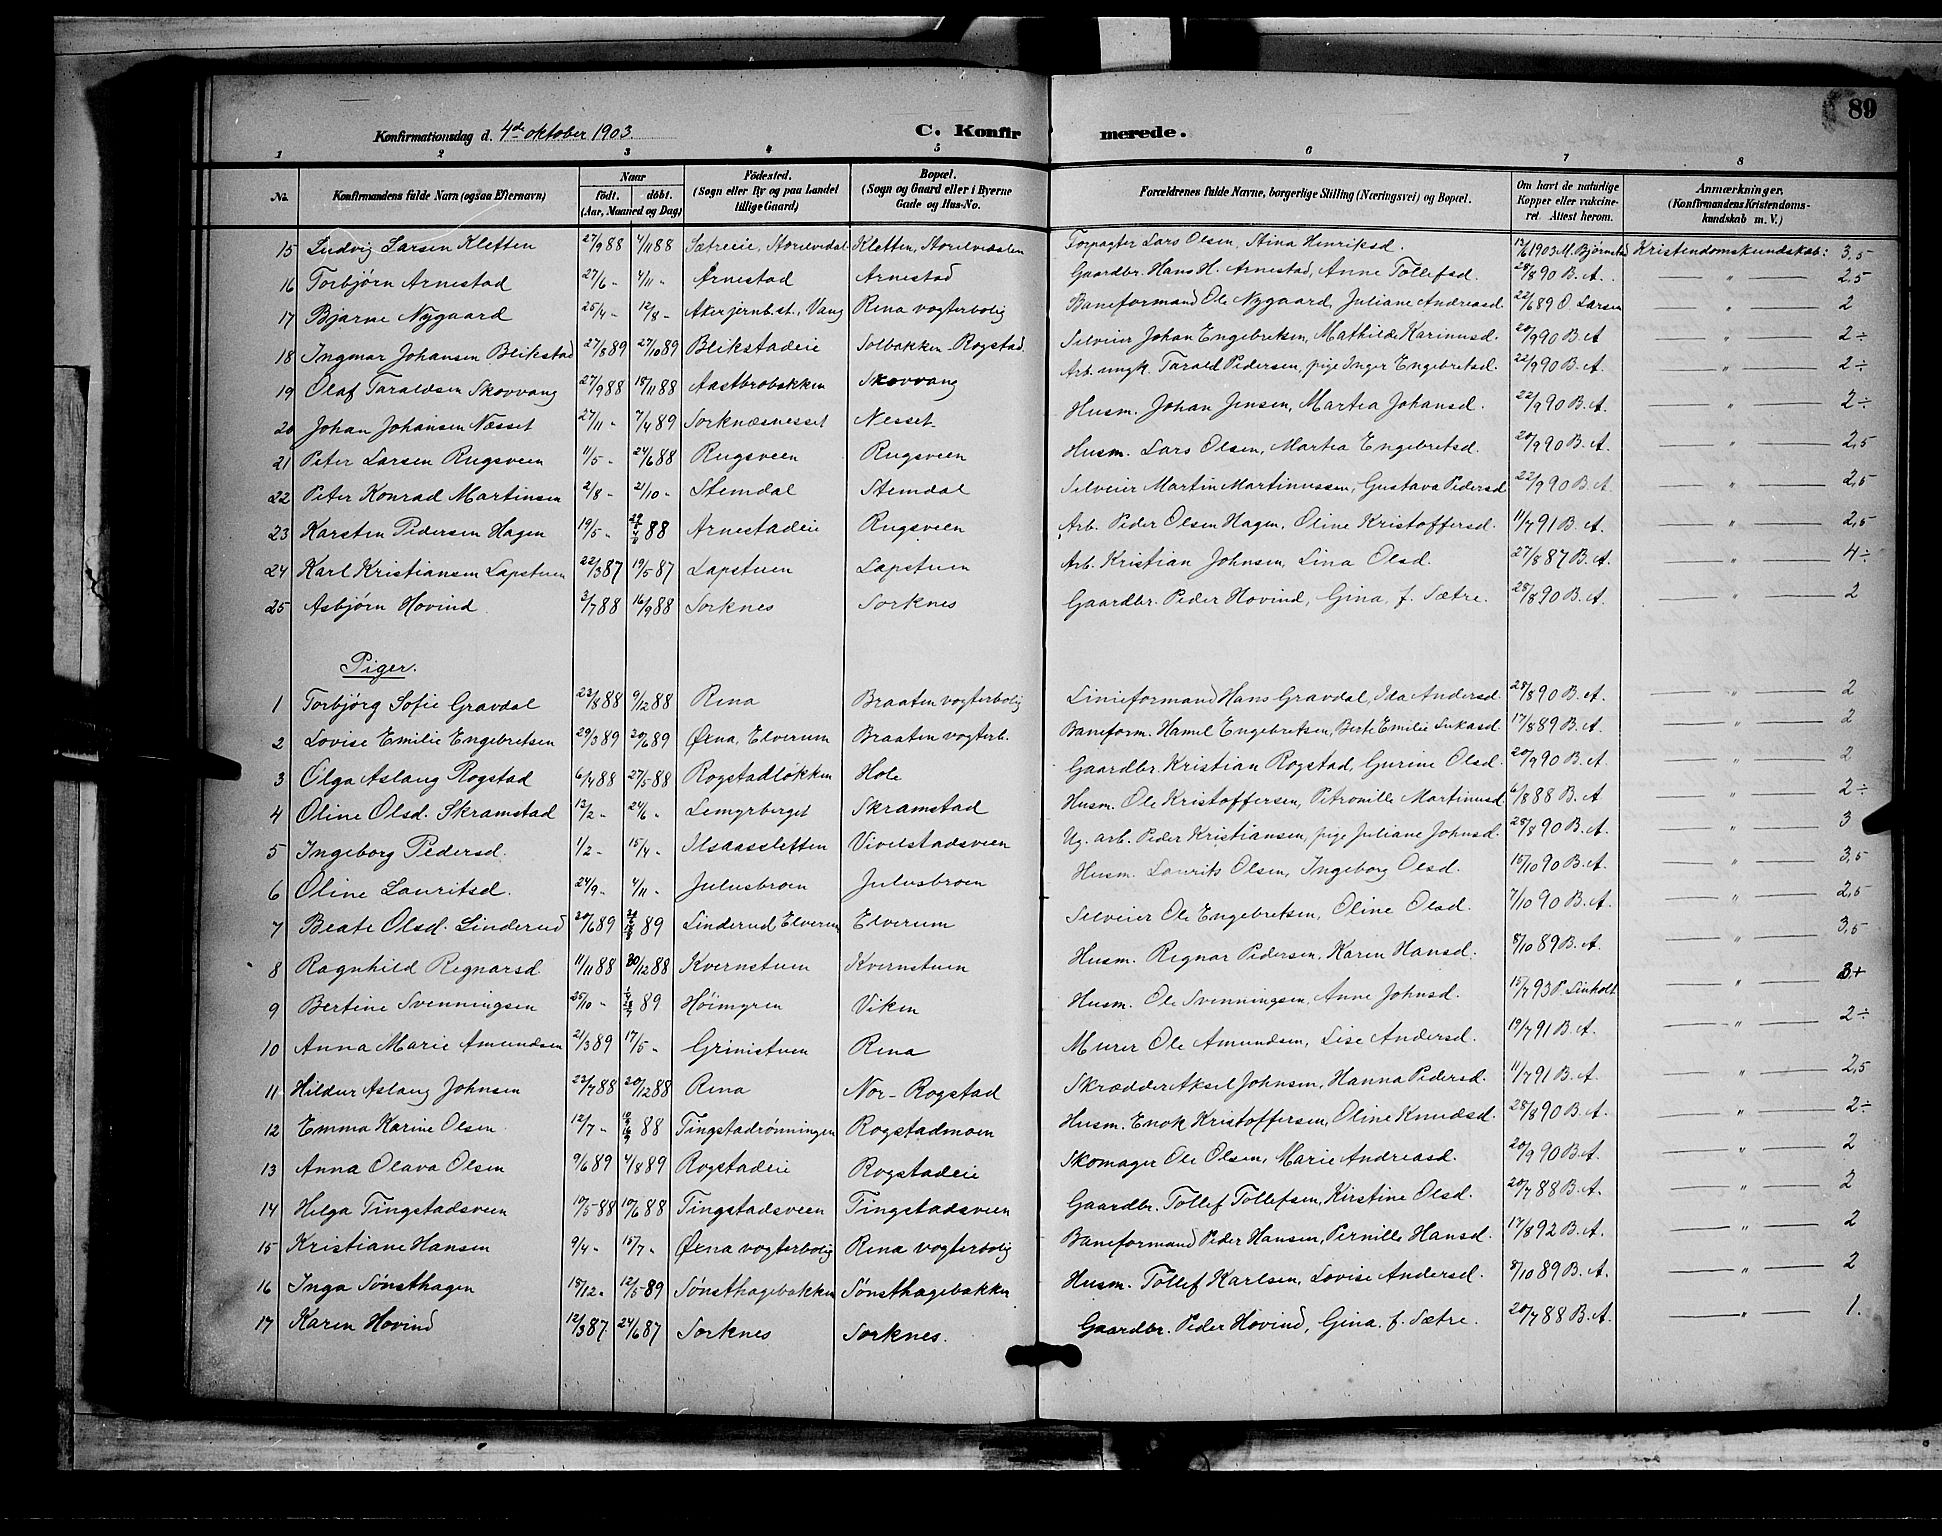 89
Konfirmationsdag d. 4de oktober 1903. C. Konfir merede.
1 2 3 4 5 6 7 8
No. Konfirmandens fulde Navn (ogsaa Efternavn) Naar födt. döbt. (Aar, Maaned og Dag) Födested. (Sogn eller By og paa Landet tillige Gaard) Bopæl. (Sogn og Gaard eller i Byerne Gade og Hus-No. Forældrenes fulde Navne, borgerlige Stilling (Næringsvei) og Bopæl. Om havt de naturlige Kopper eller vakcineret. Attest herom. Anmærkninger, (Konfirmandens Kristendomskundskab m. V.)
15 Ludvig Larsen Kletten 27/9 88 4/11 88 Sætreeie, Storelvedal Kletten, Storelvedalen Forpagter Lars Olsen, Stina Henriksd. 13/6 1903 M. Bjørnstad Kristendomskundskab: 3,5
16 Torbjørn Arnestad 27/6 - 4/11 - Arnestad Arnestad Gaardbr. Hans H. Arnestad, Anne Tollefsd. 28/8 90 B. A. — " — 2,5
17 Bjarne Nygaard 25/4 - 12/8 - Aker jernb.st., Vang Rena vogterbolig Baneformand Ole Nygaard, Juliane Andreasd. 22/6 89 O. Larsen — " — 2
18 Ingmar Johansen Blikstad 27/8 89 27/10 89 Blikstadeie Solbakken - Rogstad. Selveier Johan Engebretsen, Mathilde Karinusd. 20/9 90 B. A — " — 2÷
19 Olaf Taraldsen Skovvang 27/9 88 18/11 88 Aastbrobakken Skovvang Arb. ungk. Tarald Pedersen, pige Inger Engebretsd. 22/9 90 B. A. — " — 2÷
20 Johan Johansen Næsset 27/11 - 7/4 89 Sorknæsnesset Nesset Husm. Johan Jensen, Martea Johansd. 22/9 90 B. A. — " — 2÷
21 Peter Larsen Rugsveen 11/5 - 24/6 88 Rugsveen Rugsveen Husm. Lars Olsen, Martea Engebretsd. 20/9 90 B. A. — " — 2,5
22 Peter Konrad Martinsen 2/8 - 21/10 - Stemdal Stemdal Selveier Martin Martinussen, Gustava Pedersd 22/9 90 B. A. — " — 2,5
23 Karsten Pedersen Hagen 19/5 - 88 Arnestadeie Rugsveen Arb. Peder Olsen Hagen, Oline Kristoffersd. 11/7 91 B. A. — " — 2,5
24 Karl Kristiansen Lapstuen 22/3 87 19/5 87 Lapstuen Lapstuen Arb. Kristian Johnsen, Lina Olsd. 27/8 87 B. A. — " — 4÷
25 Asbjørn Hovind 3/7 88 16/9 88 Sorknes Sorknes Gaardbr. Peder Hovind, Gina, f. Sætre. 28/8 90 B. A. — " — 2
Piger.
1 Torbjørg Sofie Gravdal 22/8 88 9/12 88 Rena Braaten vogterbolig Linieformand Hans Gravdal, Ida Andersd. 28/8 90 B. A. — " — 2
2 Lovise Emilie Engebretsen 29/3 89 20/6 89 Øxna, Elverum Braaten vogterb. Baneform. Hamel Engebretsen, Berte Emilie Lukasd. 17/8 89 B. A. — " — 2
3 Olga Aslaug Rogstad 6/4 88 27/5 88 Rogstadløkken Hole Gaardbr. Kristian Rogstad, Gurine Olsd. 20/9 90 B. A. — " — 2
4 Oline Olsd. Skramstad 12/2 - 24/6 - Lemyrberget Skramstad Husm. Ole Kristoffersen, Petronille Martinusd 6/8 88 B. A — " — 2÷
5 Ingeborg Pedersd. 1/2 - 15/4 - Ilsaassletten Vivelstadsveen Ug. arb. Peder Kristiansen, pige Juliane Johnsd. 28/8 90 B. A. — " — 3
6 Oline Lauritsd. 24/9 - 4/11 - Julusbroen Julusbroen Husm. Laurits Olsen, Ingeborg Olsd. 15/10 90 B. A. — " — 3,5
7 Beate Olsd. Linderud 20/6 89 89 Linderud Elverum Elverum Selveier Ole Engebretsen, Oline Olsd. 7/10 90 B. A. — " — 2,5
8 Ragnhild Regnarsd 11/11 88 30/12 88 Kvernstuen Kvernstuen Husm. Regnar Pedersen, Karen Hansd. 8/10 89 B. A. — " — 3,5
9 Bertine Svenningsen 25/10 - 89 Høimyren Viken Husm. Ole Svenningsen, Anne Johnsd. 15/7 93 P. Linholt — " — 3+
10 Anna Marie Amundsen 21/3 89 17/5 - Grinistuen Rena Murer Ole Amundsen, Lise Andersd. 19/7 91 B. A. — " — 2÷
11 Hildur Aslaug Johnsen 23/7 88 20/12 88 Rena Nor - Rogstad Skrædder Aksel Johnsen, Hanna Pedersd. 11/7 91 B. A. — " — 2,5
12 Emma Karine Olsen 12/7 - 88 Tingstadrønningen Rogstadmoen Husm. Enok Kristoffersen, Oline Knudsd. 28/8 90 B. A. — " — 2÷
13 Anna Olava Olsen 9/6 89 4/8 89 Rogstadeie Rogstadeie Skomager Ole Olsen, Marie Andreasd. 20/9 90 B. A. — " — 2
14 Helga Tingstadsveen 10/5 88 10/6 88 Tingstadsveen Tingstadsveen Gaardbr. Tollef Tollefsen, Kirstine Olsd. 20/7 88 B. A. — " — 2
15 Kristiane Hansen 9/4 - 15/7 - Øxna vogterbolig Rena vogterbolig Baneformand Peder Hansen, Pernille Hansd. 17/8 92 B. A. — " — 2
16 Inga Sønsthagen 18/12 - 12/5 89 Sønsthagebakken Sønsthagebakken Husm. Tollef Karlsen, Lovise Andersd. 8/10 89 B. A. — " — 2
17 Karen Hovind 12/3 87 24/6 87 Sorknes Sorknes. Gaardbr. Peder Hovind, Gina. f. Sætre. 20/7 88 B. A. — " — 1.